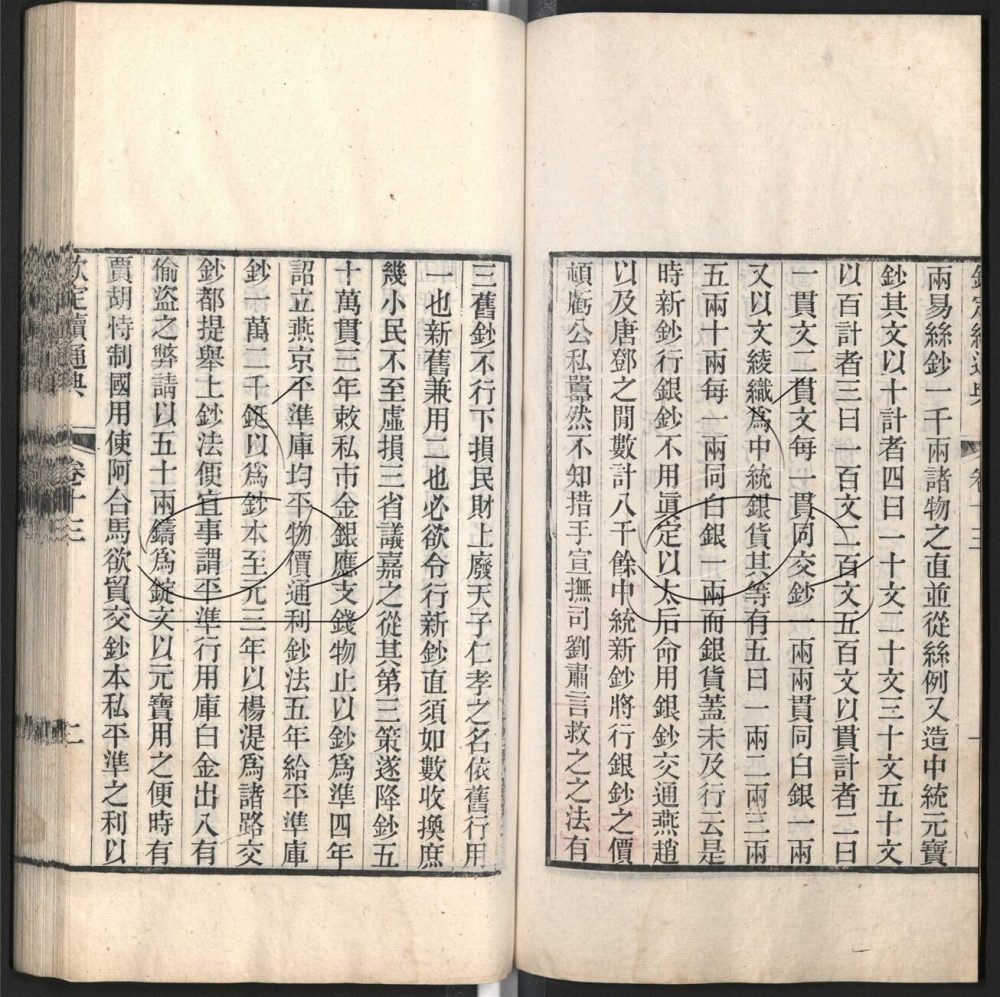 兩易絲鈔一千兩諸物之直並從絲例又造中統元寶
鈔其文以十計者四曰一十文二十文三十文五十文
以百計者三曰一百文二百文五百文以貫計者二曰
一貫文二貫文每一貫同交鈔一兩兩貫同白銀一兩
又以文綾織爲中統銀貨其等有五曰一兩二兩三兩
五兩十兩每一兩同白銀一兩而銀貨蓋未及行云是
時新鈔行銀鈔不用眞定以太后命用銀鈔交通燕趙
以及唐鄧之閒數計八千餘中統新鈔將行銀鈔之價
頓虧公私囂然不知措手宣撫司劉肅言救之之法有
三舊鈔不行下損民財上廢天子仁孝之名依舊行用
一也新舊兼用二也必欲令行新鈔直須如數收換庶
幾小民不至虛損三省議嘉之從其第三策遂降鈔五
十萬貫三年敕私市金銀應支錢物止以鈔爲準四年
詔立燕京平準庫均平物價通利鈔法五年給平準庫
鈔一萬二千錠以爲鈔本至元三年以楊湜爲諸路交
鈔都提舉上鈔法便宜事謂平準行用庫白金出入有
偷盜之弊請以五十兩鑄爲錠文以元寶用之便時有
賈胡恃制國用使阿合馬欲貿交鈔本私平準之利以
欽定續通典 卷十三 二